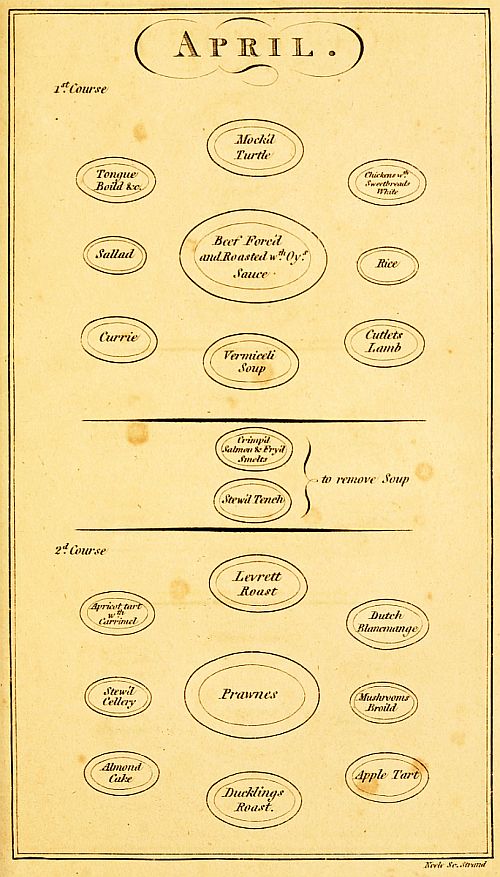 APRIL.
1st. Course
Mock'd
Turtle
Tongue
Boild &c.
Chickens wth
Sweetbreads
White
Sallad
Beef Forc'd
and Roasted wth. Oyr
Sauce
Rice
Currie
Vermiceli
Soup
Cutlets
Lamb
Crimp'd
Salmon & Fry'd
Smelts
Stew'd Tench
to remove Soup
2d. Course
Levrett
Roast
Apricot tart
wth
Carrimel
Dutch
Blancmange
Stew'd
Cellery
Prawnes
Mushrooms
Broild
Almond
Cake
Ducklings
Roast.
Apple Tart
Neele Sc. Strand